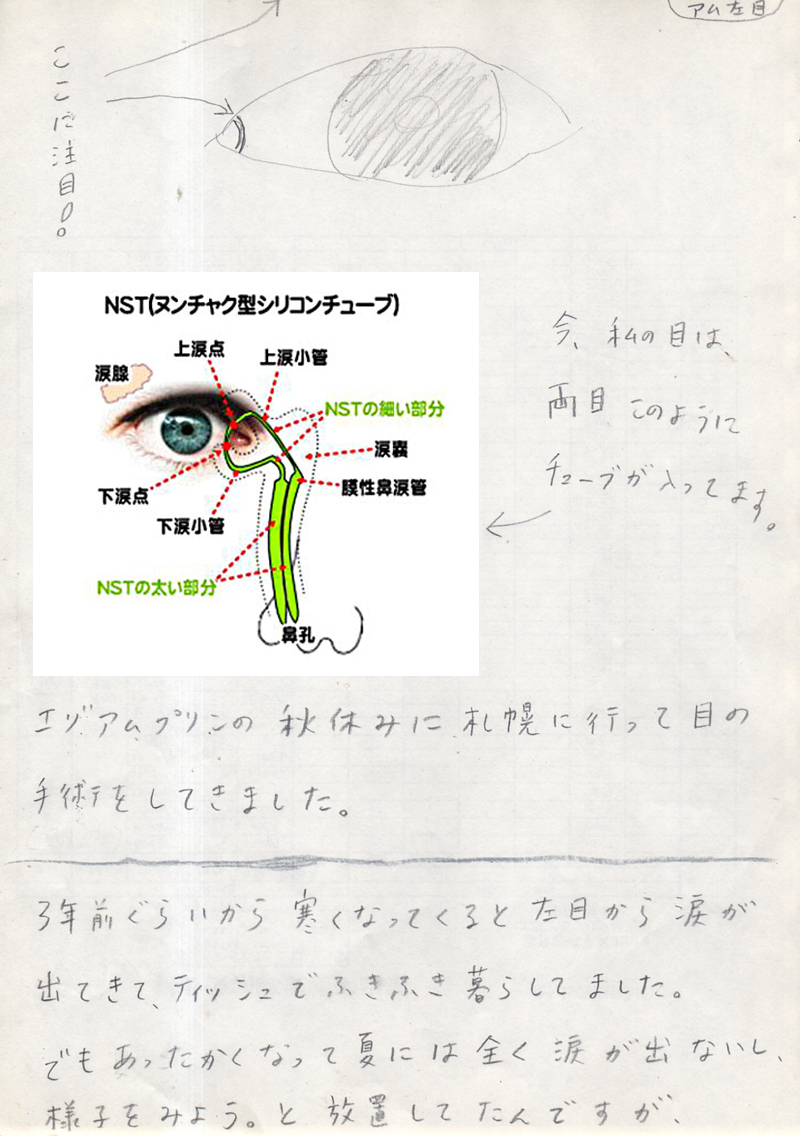 アム左目
ここに注目!!
NST(ヌンチャク型シリコンチューブ)
上涙点
上涙小管
涙腺
NSTの細い部分
涙嚢
下涙点
膜性鼻涙管
下涙小管
NSTの太い部分
鼻孔
今、私の目は、
両目このように
チューブが入ってます。
エゾアムプリンの秋休みに札幌に行って目の
手術をしてきました。
3年前ぐらいから寒くなってくると左目から涙が
出てきて、ティッシュでふきふき暮らしてました。
でもあったかくなって夏には全く涙が出ないし、
様子をみよう。と放置してたんですが、